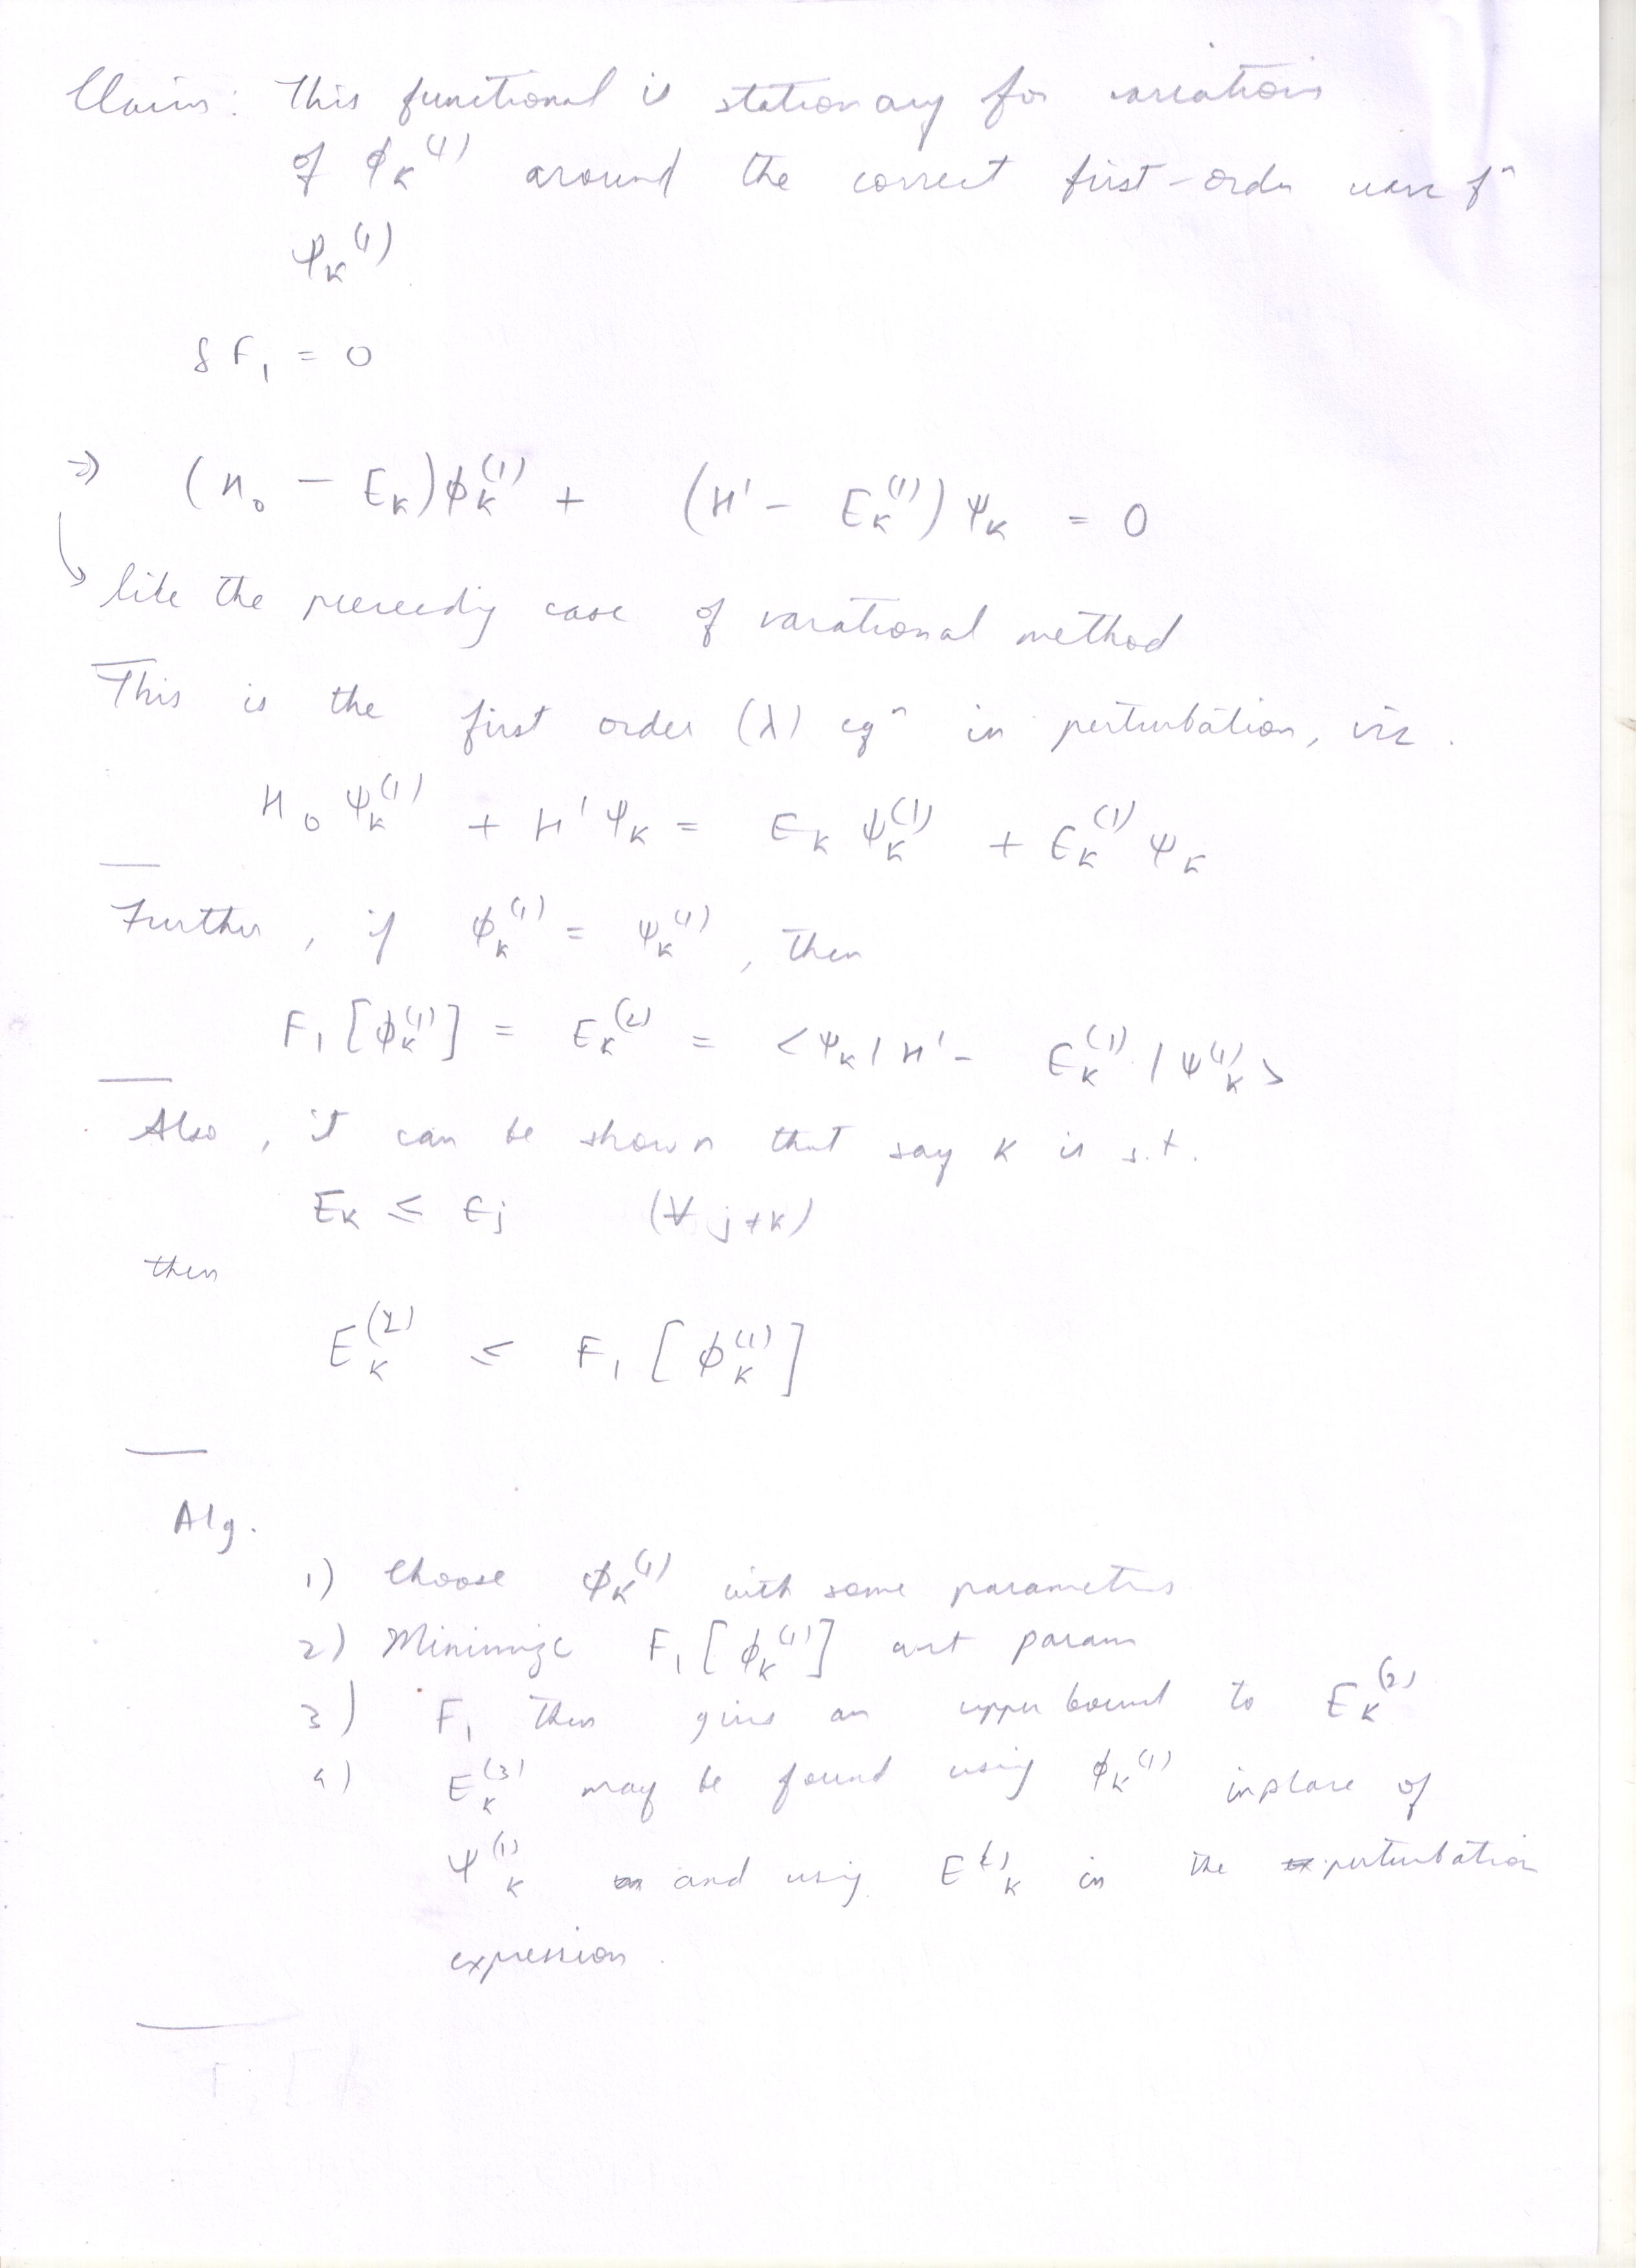 Claim: This functional is stationary for variations
of ϕ_K^(1) around the correct first-order wave fⁿ
ψ_K^(1)
δF₁ = 0
⇒ (H₀ − E_K)ϕ_K^(1) + (H' − E_K^(1)) ψ_K = 0
↳ like the preceedig case of varational method
This is the first order (λ) eqⁿ in perturbation, viz.
H₀ ψ_K^(1) + H' ψ_K = E_K ψ_K^(1) + E_K^(1) ψ_K
Further, if ϕ_K^(1) = ψ_K^(1), then
F₁[ϕ_K^(1)] = E_K^(2) = <ψ_K | H' − E_K^(1) | ψ_K^(1)>
Also, it can be shown that say K is s.t.
E_K ≤ E_j (∀ j≠K)
then
E_K^(2) ≤ F₁[ϕ_K^(1)]
Alg.
1) Choose ϕ_K^(1) with some parameters
2) Minimize F₁[ϕ_K^(1)] wrt param
3) F₁ then gives an upper bound to E_K^(2)
4) E_K^(3) may be found using ϕ_K^(1) inplace of
ψ_K^(1) and using E_K^(1) in the perturbation
expression.